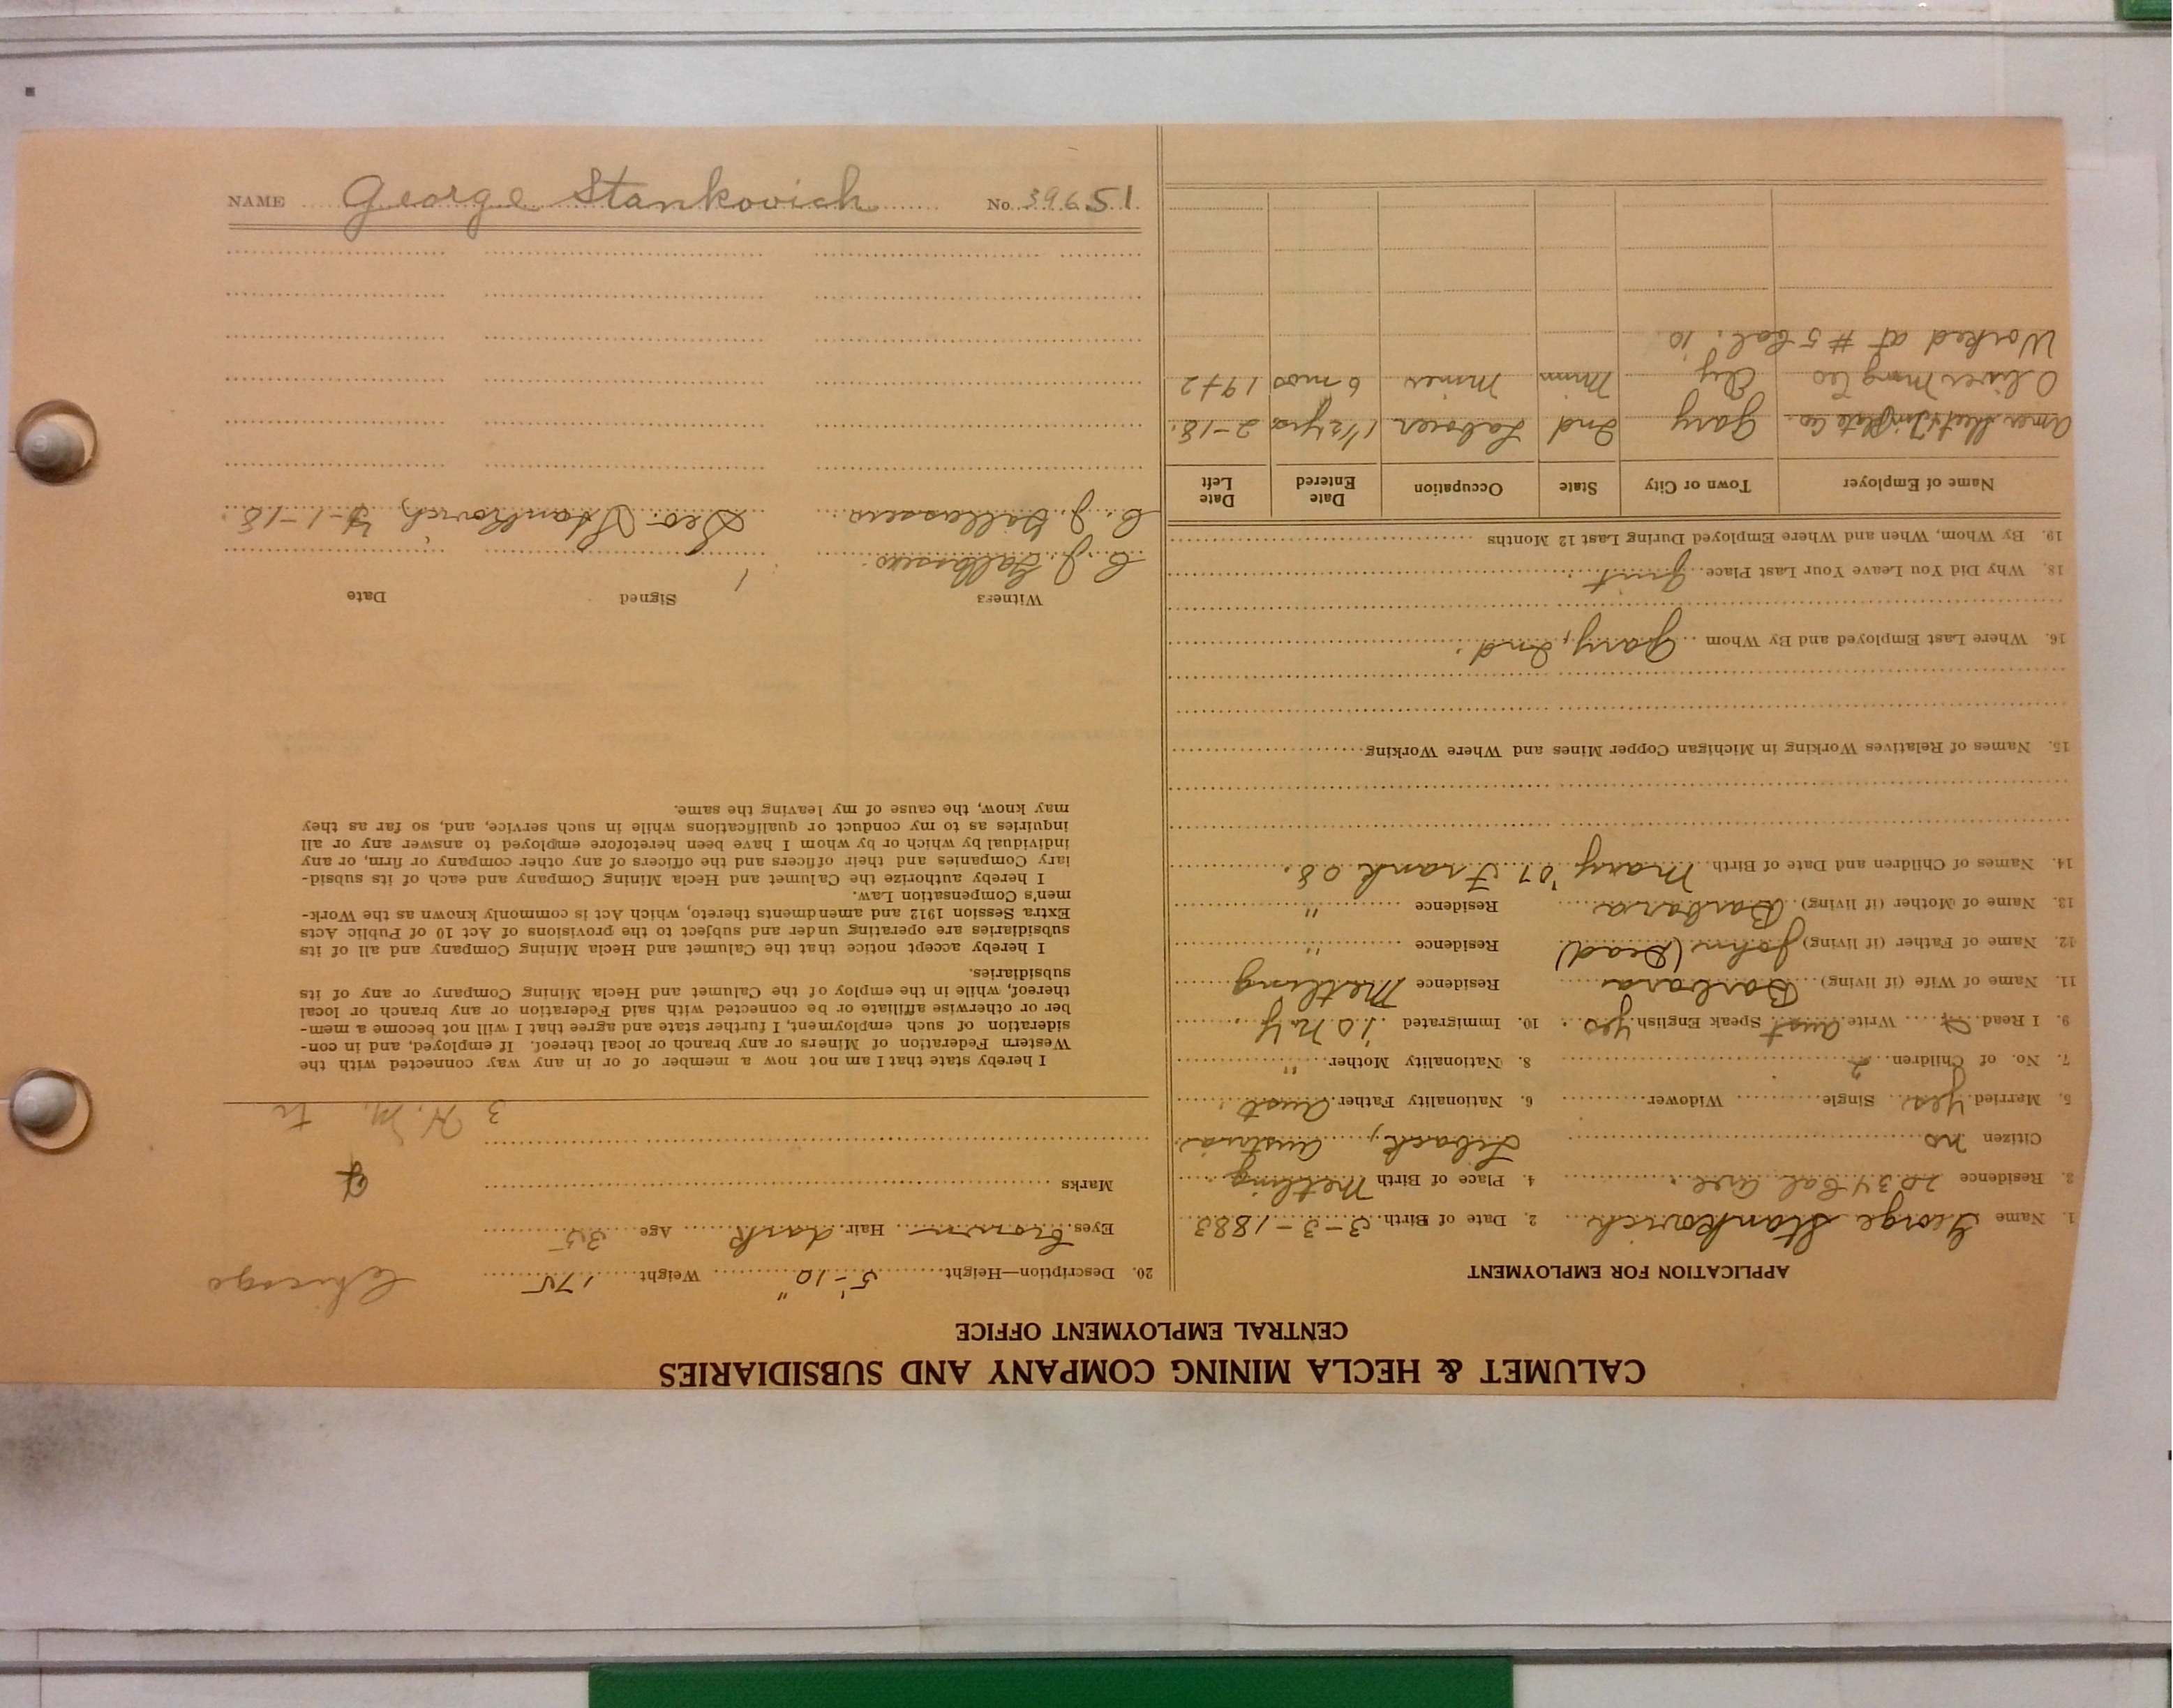 CALUMET & HECLA MINING COMPANY AND SUBSIDIARIES
CENTRAL EMPLOYMENT OFFICE
APPLICATION FOR EMPLOYMENT
1. Name George Stankovich 2. Date of Birth 3-3-1883
3. Residence 2034 Cal Ave. 4. Place of Birth Metling
Citizen no Austria
5. Married Yes Single Widower 6. Nationality Father Aust
7. No. of Children 2 8. Nationality Mother "
9. I Read Write Aust Speak English Yes 10. Immigrated '10 N.Y.
11. Name of Wife (if living) Barbara Residence Metling
12. Name of Father (if living) John (Dead) Residence "
13. Name of Mother (if living) Barbara Residence "
14. Names of Children and Date of Birth Mary '07 Frank 08.
15. Names of Relatives Working in Michigan Copper Mines and Where Working
16. Where Last Employed and By Whom Gary, Ind.
18. Why Did You Leave Your Last Place
19. By Whom, When and Where Employed During Last 12 Months
Name of Employer Town or City State Occupation Date Entered Date Left
Amer. Sheet & Tin Plate Co. Gary Ind Laborer 1 1/2 yrs 2-18.
Oliver Mng Co Ely Minn Miner 6 mos
Worked at # 5 Cal. '10.
20. Description—Height 5'-10" Weight 175 Chicago
Eyes brown Hair dark Age 35
Marks
3 H.M. tr
I hereby state that I am not now a member of or in any way connected with the
Western Federation of Miners or any branch or local thereof. If employed, and in con-
sideration of such employment, I further state and agree that I will not become a mem-
ber or otherwise affiliate or be connected with said Federation or any branch or local
thereof, while in the employ of the Calumet and Hecla Mining Company or any of its
subsidiaries.
I hereby accept notice that the Calumet and Hecla Mining Company and all of its
subsidiaries are operating under and subject to the provisions of Act 10 of Public Acts
Extra Session 1912 and amendments thereto, which Act is commonly known as the Work-
men's Compensation Law.
I hereby authorize the Calumet and Hecla Mining Company and each of its subsid-
iary Companies and their officers and the officers of any other company or firm, or any
individual by which or by whom I have been heretofore employed to answer any or all
inquiries as to my conduct or qualifications while in such service, and, so far as they
may know, the cause of my leaving the same.
Witness Signed Date
C. J.
C. J. Geo. Stankovich 3-1-18
NAME George Stankovich No. 39651